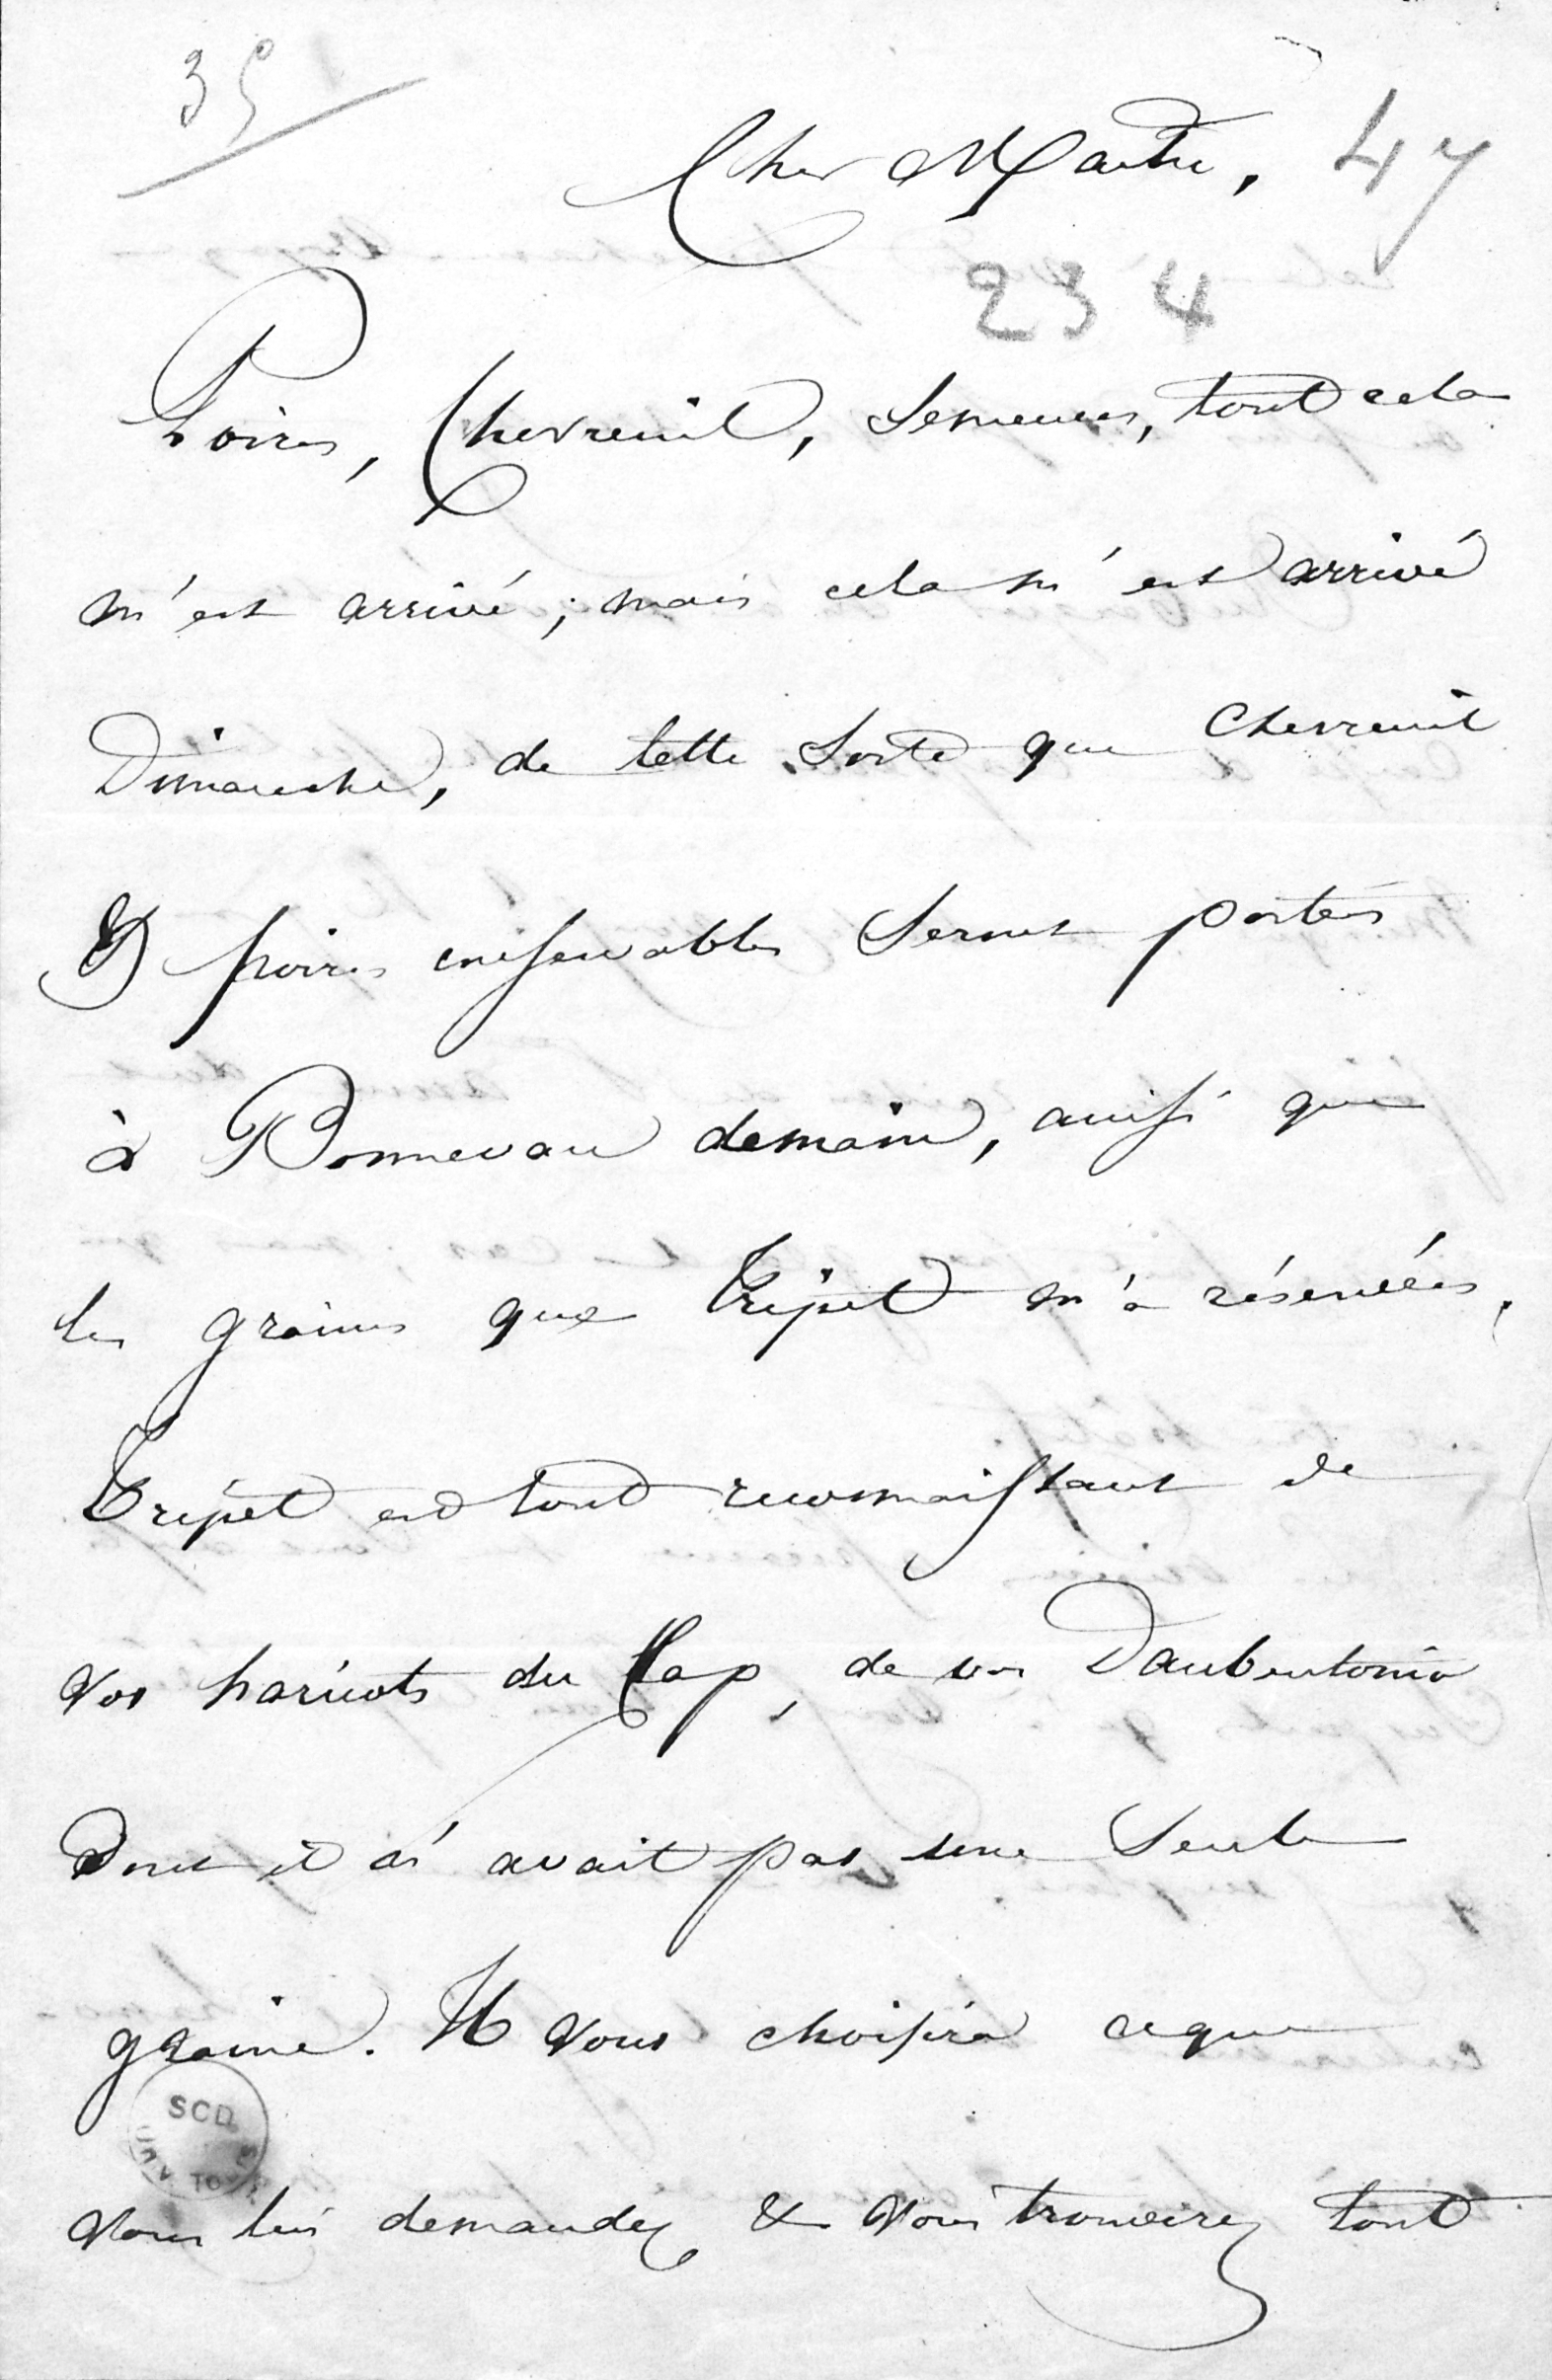 35
Cher Maître, 47
234
Poires, Chevreuil, Semences, tout cela
m'est arrivé; mais cela m'est arrivé
Dimanche, de telle sorte que Chevreuil
& poires conservables seront portés
à Bonnevau demain, aussi que
les graines que Tripet m'a réservées.
Tripet est tout reconnaissant de
vos haricots du Cap, de vos Daubentonia
Dont il n'avait pas une seule
graine. Il vous choisira ce que
vous lui demandez & vous trouverez tout
SCD